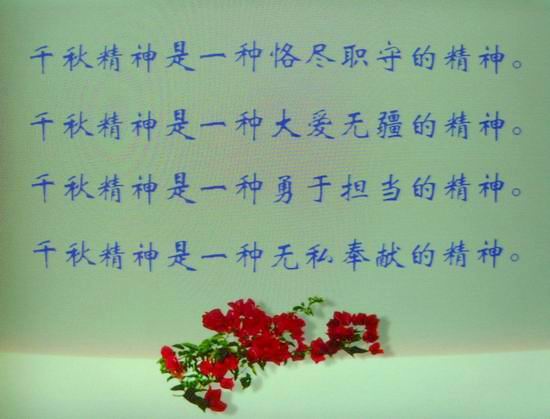 千秋精神是一种恪尽职守的精神。
千秋精神是一种大爱无疆的精神。
千秋精神是一种勇于担当的精神。
千秋精神是一种无私奉献的精神。